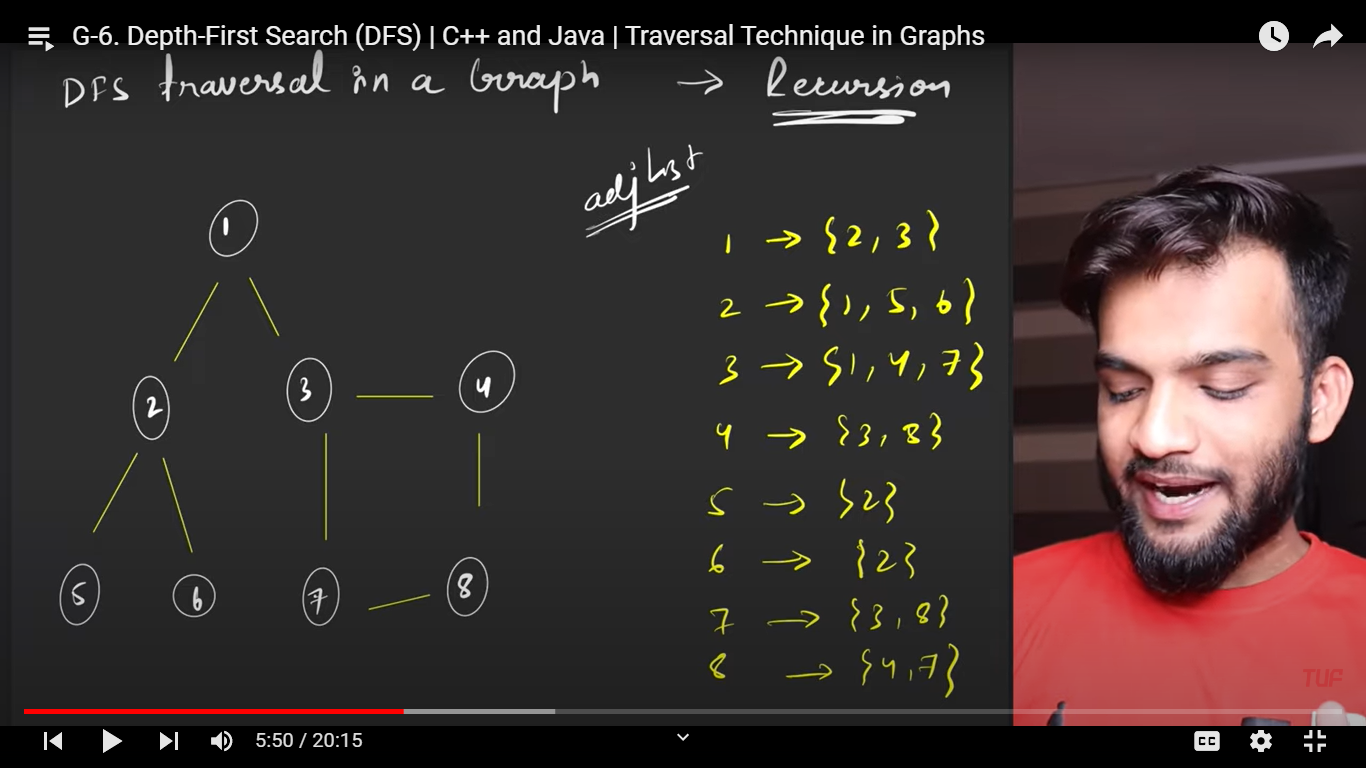 G-6. Depth-First Search (DFS) | C++ and Java | Traversal Technique in Graphs
DFS traversal in a Graph → Recursion
adj list
1 → {2, 3}
2 → {1, 5, 6}
3 → {1, 4, 7}
4 → {3, 8}
5 → {2}
6 → {2}
7 → {3, 8}
8 → {4, 7}
1
2
3
4
5
6
7
8
TUF
5:50 / 20:15
CC